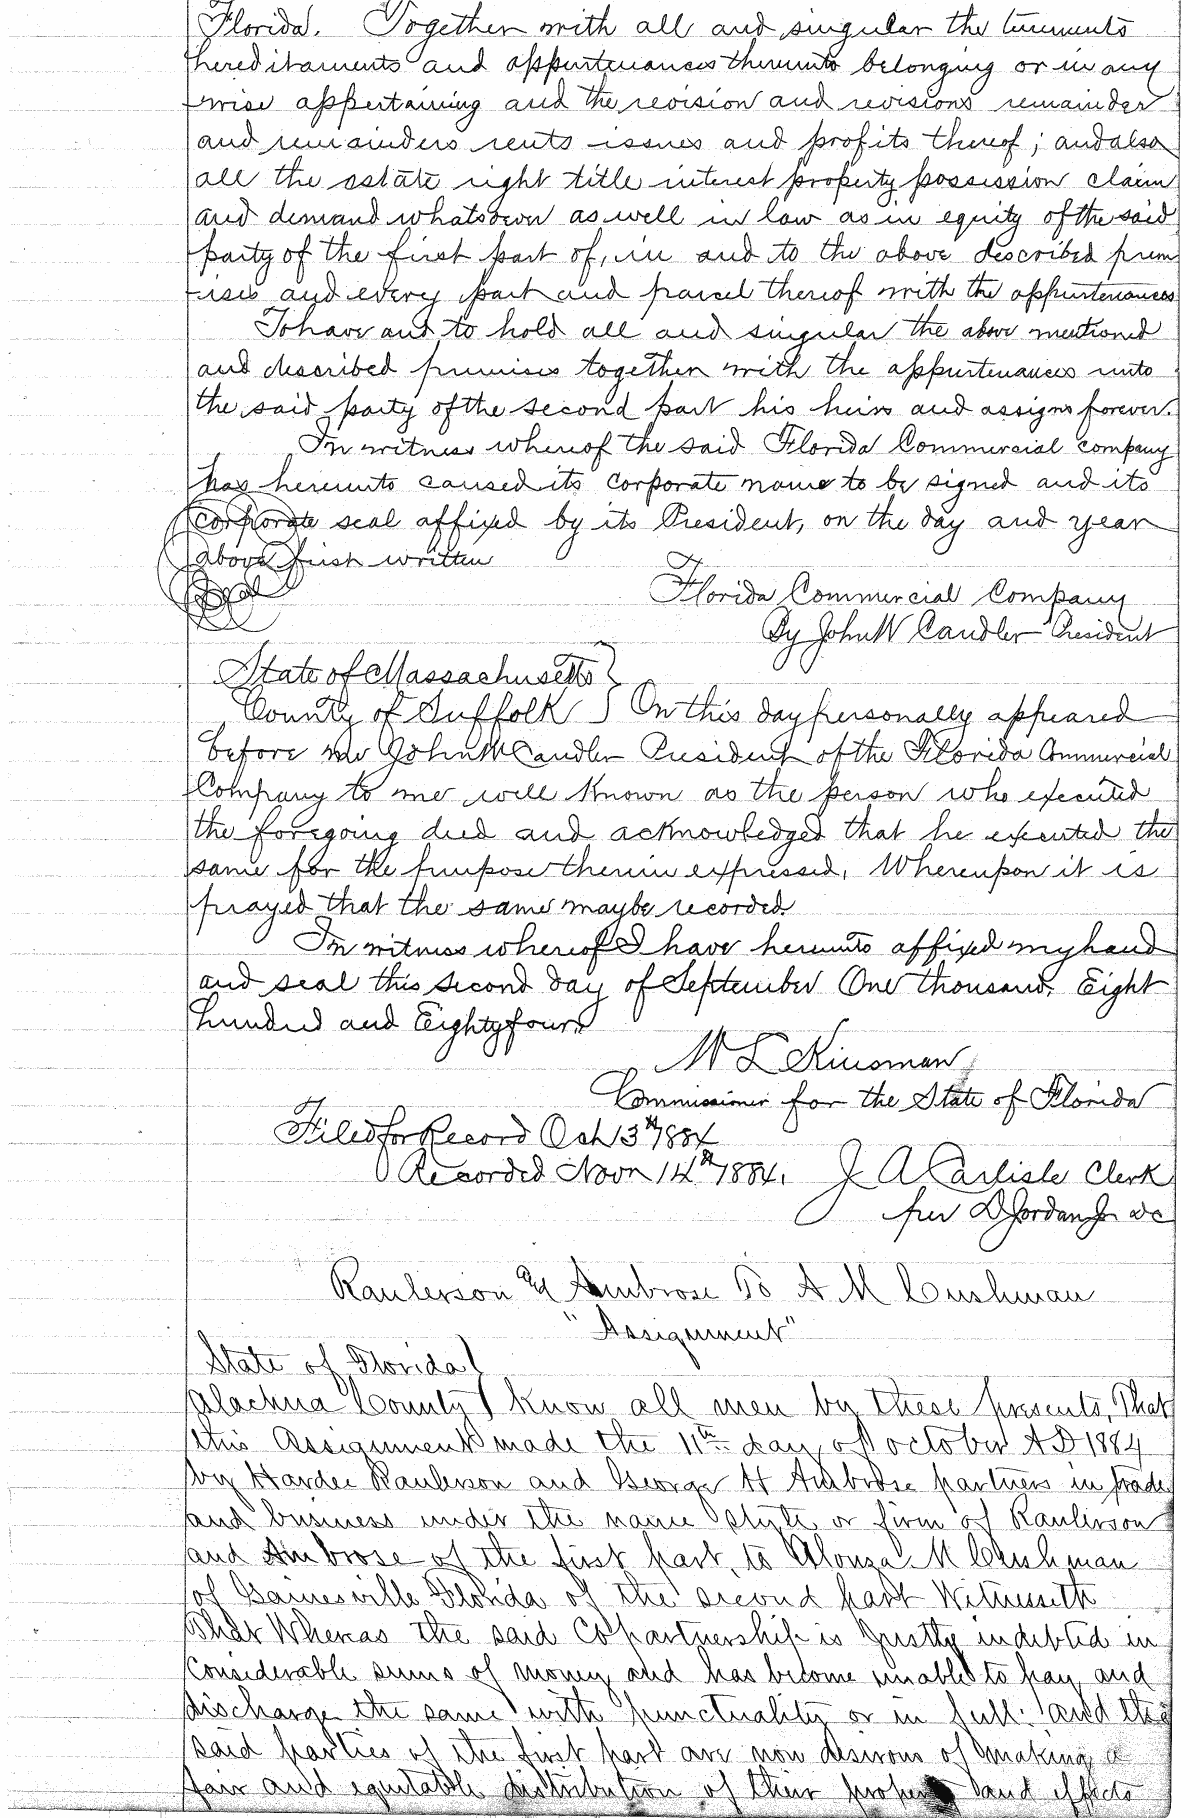 Florida. Together with all and singular the tenements
hereditaments and appurtenances thereunto belonging or in any
wise appertaining and the revision and revisions remainder
and remainders rents issues and profits thereof; and also
all the estate right title interest property possession claim
and demand whatsoever as well in law as in equity of the said
party of the first part of, in and to the above described prem
ises and every part and parcel thereof with the appurtenances
To have and to hold all and singular the above mentioned
and described premises together with the appurtenances unto
the said party of the second part his heirs and assigns forever.
In witness whereof the said Florida Commercial company
has hereunto caused its corporate name to be signed and its
corporate seal affixed by its President, on the day and year
above first written
Seal
Florida Commercial Company
By John W Candler President
State of Massachusetts }
County of Suffolk } On this day personally appeared
before me John W Candler President of the Florida Commercial
Company to me well known as the person who executed
the foregoing deed and acknowledged that he executed the
same for the purpose therein expressed. Whereupon it is
prayed that the same may be recorded.
In witness whereof I have hereunto affixed my hand
and seal this second day of September One thousand, Eight
hundred and Eighty four.
W L Kinsman
Commissioner for the State of Florida
Filed for Record Oct 3rd 1884
Recorded Novr 14th 1884. J A Carlisle Clerk
per D Jordan Jr DC
Raulerson & Ambrose To A M Cushman
"Assignment"
State of Florida }
Alachua County } Know all men by these presents, That
this Assignment made the 11th day of October A D 1884
by Hardee Raulerson and George H Ambrose partners in trade
and business under the name style or firm of Raulerson
and Ambrose of the first part, to Alonza M Cushman
of Gainesville Florida of the second part Witnesseth
That Whereas the said Copartnership is justly indebted in
considerable sums of money and has become unable to pay and
discharge the same with punctuality or in full. and the
said parties of the first part are now desirous of making a
fair and equitable distribution of their property and effects